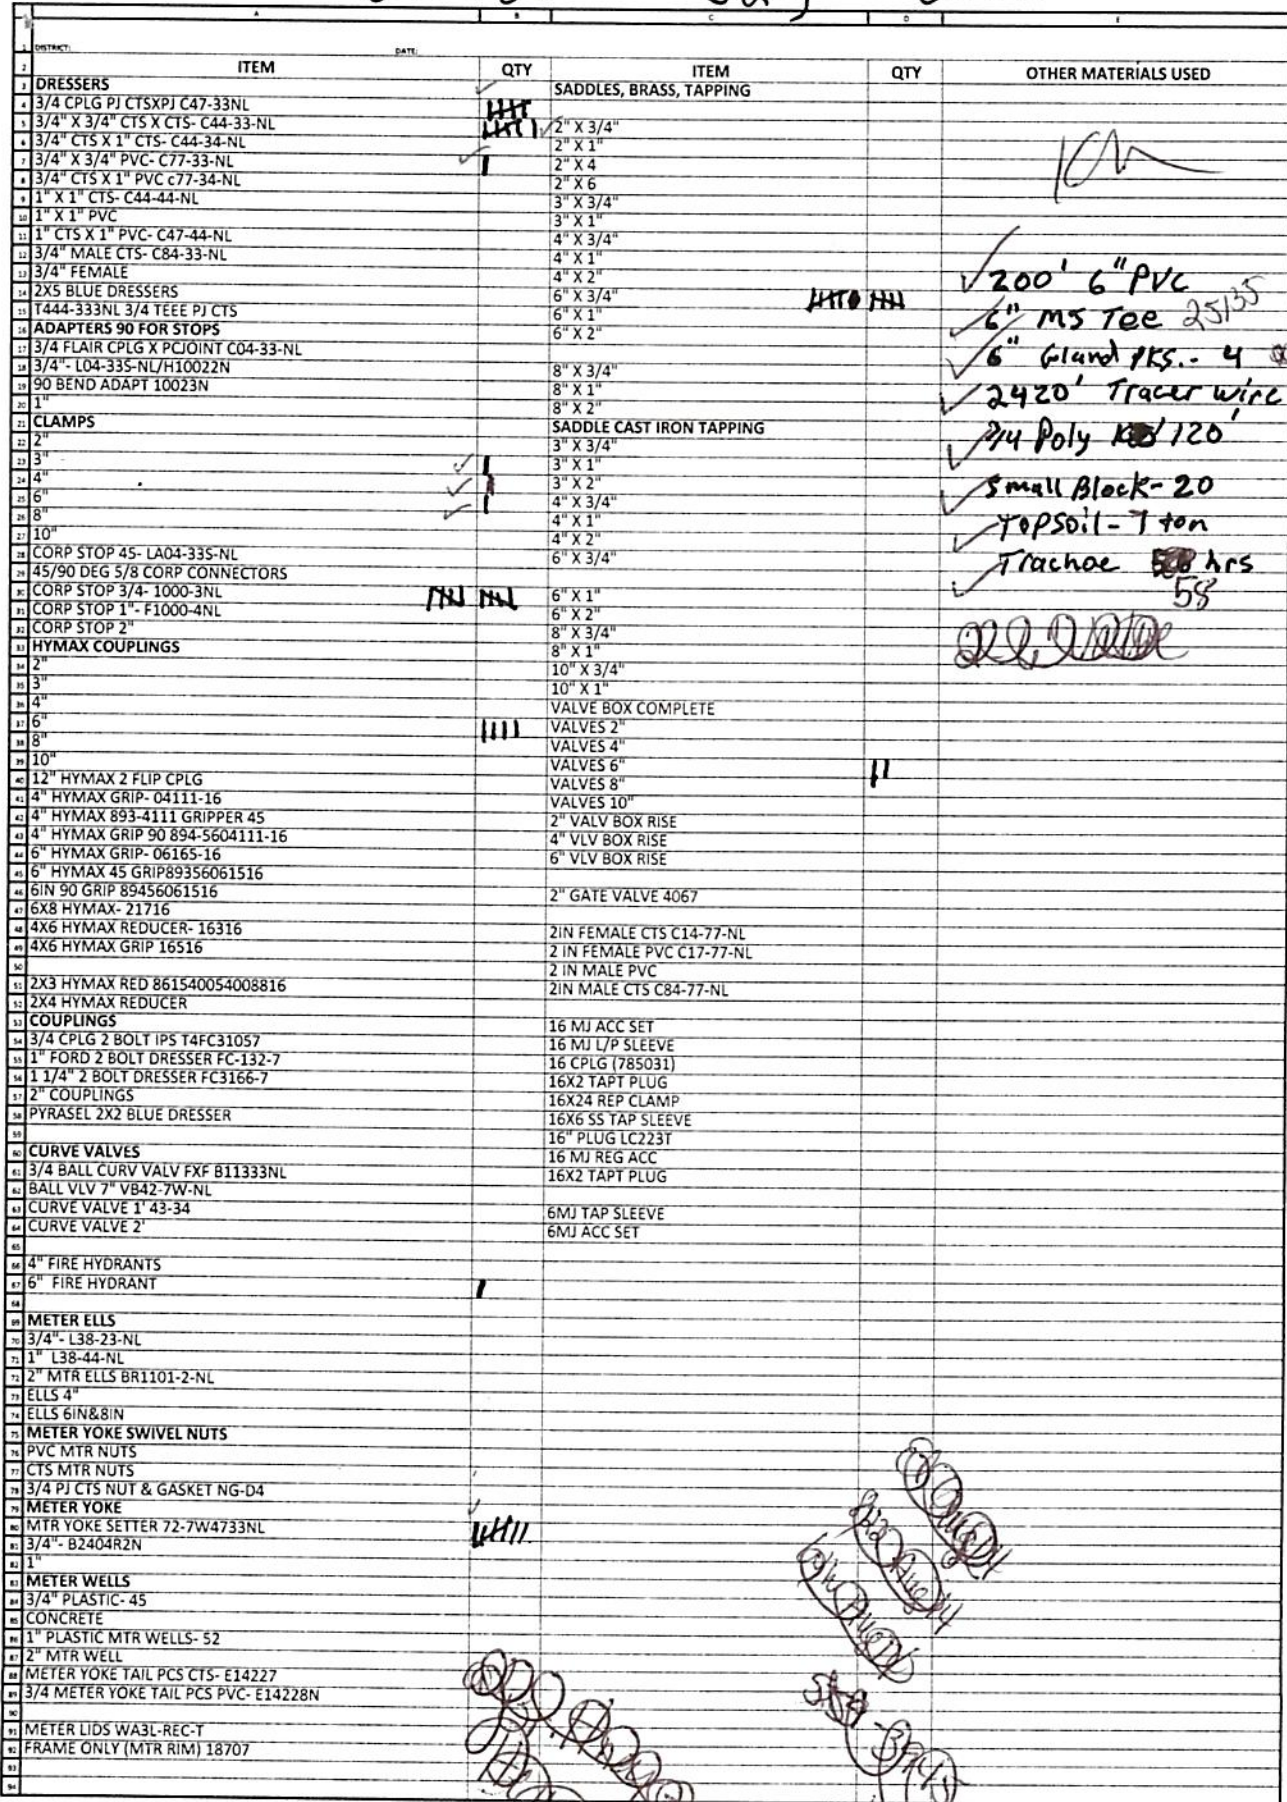 A B C D E
1 DISTRICT: DATE:
2 ITEM QTY ITEM QTY OTHER MATERIALS USED
3 DRESSERS
SADDLES, BRASS, TAPPING
4 3/4 CPLG PJ CTSXPJ C47-33NL
5 3/4" X 3/4" CTS X CTS- C44-33-NL
2" X 3/4"
6 3/4" CTS X 1" CTS- C44-34-NL
2" X 1"
7 3/4" X 3/4" PVC- C77-33-NL
2" X 4
8 3/4" CTS X 1" PVC c77-34-NL
2" X 6
9 1" X 1" CTS- C44-44-NL
3" X 3/4"
10 1" X 1" PVC
3" X 1"
11 1" CTS X 1" PVC- C47-44-NL
4" X 3/4"
12 3/4" MALE CTS- C84-33-NL
4" X 1"
13 3/4" FEMALE
4" X 2"
200' 6" PVC
14 2X5 BLUE DRESSERS
6" X 3/4"
15 T444-333NL 3/4 TEEE PJ CTS
6" X 1"
6" MJ Tee 25135
16 ADAPTERS 90 FOR STOPS
6" X 2"
17 3/4 FLAIR CPLG X PCJOINT C04-33-NL
6" Gland PKS.- 4
18 3/4"- L04-33S-NL/H10022N
8" X 3/4"
19 90 BEND ADAPT 10023N
8" X 1"
2420' Tracer wire
20 1"
8" X 2"
21 CLAMPS
SADDLE CAST IRON TAPPING
3/4 Poly 120'
22 2"
3" X 3/4"
23 3"
3" X 1"
24 4"
3" X 2"
Small Block- 20
25 6"
4" X 3/4"
26 8"
4" X 1"
TOPSOIL- 7 ton
27 10"
4" X 2"
28 CORP STOP 45- LA04-33S-NL
6" X 3/4"
Trachoe hrs
58
29 45/90 DEG 5/8 CORP CONNECTORS
30 CORP STOP 3/4- 1000-3NL
6" X 1"
31 CORP STOP 1"- F1000-4NL
6" X 2"
32 CORP STOP 2"
8" X 3/4"
33 HYMAX COUPLINGS
8" X 1"
34 2"
10" X 3/4"
35 3"
10" X 1"
36 4"
VALVE BOX COMPLETE
37 6"
VALVES 2"
38 8"
VALVES 4"
39 10"
VALVES 6"
40 12" HYMAX 2 FLIP CPLG
VALVES 8"
41 4" HYMAX GRIP- 04111-16
VALVES 10"
42 4" HYMAX 893-4111 GRIPPER 45
2" VALV BOX RISE
43 4" HYMAX GRIP 90 894-5604111-16
4" VLV BOX RISE
44 6" HYMAX GRIP- 06165-16
6" VLV BOX RISE
45 6" HYMAX 45 GRIP89356061516
46 6IN 90 GRIP 89456061516
2" GATE VALVE 4067
47 6X8 HYMAX- 21716
48 4X6 HYMAX REDUCER- 16316
2IN FEMALE CTS C14-77-NL
49 4X6 HYMAX GRIP 16516
2 IN FEMALE PVC C17-77-NL
50
2 IN MALE PVC
51 2X3 HYMAX RED 861540054008816
2IN MALE CTS C84-77-NL
52 2X4 HYMAX REDUCER
53 COUPLINGS
16 MJ ACC SET
54 3/4 CPLG 2 BOLT IPS T4FC31057
16 MJ L/P SLEEVE
55 1" FORD 2 BOLT DRESSER FC-132-7
16 CPLG (785031)
56 1 1/4" 2 BOLT DRESSER FC3166-7
16X2 TAPT PLUG
57 2" COUPLINGS
16X24 REP CLAMP
58 PYRASEL 2X2 BLUE DRESSER
16X6 SS TAP SLEEVE
59
16" PLUG LC223T
60 CURVE VALVES
16 MJ REG ACC
61 3/4 BALL CURV VALV FXF B11333NL
16X2 TAPT PLUG
62 BALL VLV 7" VB42-7W-NL
63 CURVE VALVE 1' 43-34
6MJ TAP SLEEVE
64 CURVE VALVE 2'
6MJ ACC SET
65
66 4" FIRE HYDRANTS
67 6" FIRE HYDRANT
68
69 METER ELLS
70 3/4"- L38-23-NL
71 1" L38-44-NL
72 2" MTR ELLS BR1101-2-NL
73 ELLS 4"
74 ELLS 6IN&8IN
75 METER YOKE SWIVEL NUTS
76 PVC MTR NUTS
77 CTS MTR NUTS
78 3/4 PJ CTS NUT & GASKET NG-D4
79 METER YOKE
80 MTR YOKE SETTER 72-7W4733NL
81 3/4"- B2404R2N
82 1"
83 METER WELLS
84 3/4" PLASTIC- 45
85 CONCRETE
86 1" PLASTIC MTR WELLS- 52
87 2" MTR WELL
88 METER YOKE TAIL PCS CTS- E14227
89 3/4 METER YOKE TAIL PCS PVC- E14228N
90
91 METER LIDS WA3L-REC-T
92 FRAME ONLY (MTR RIM) 18707
93
94